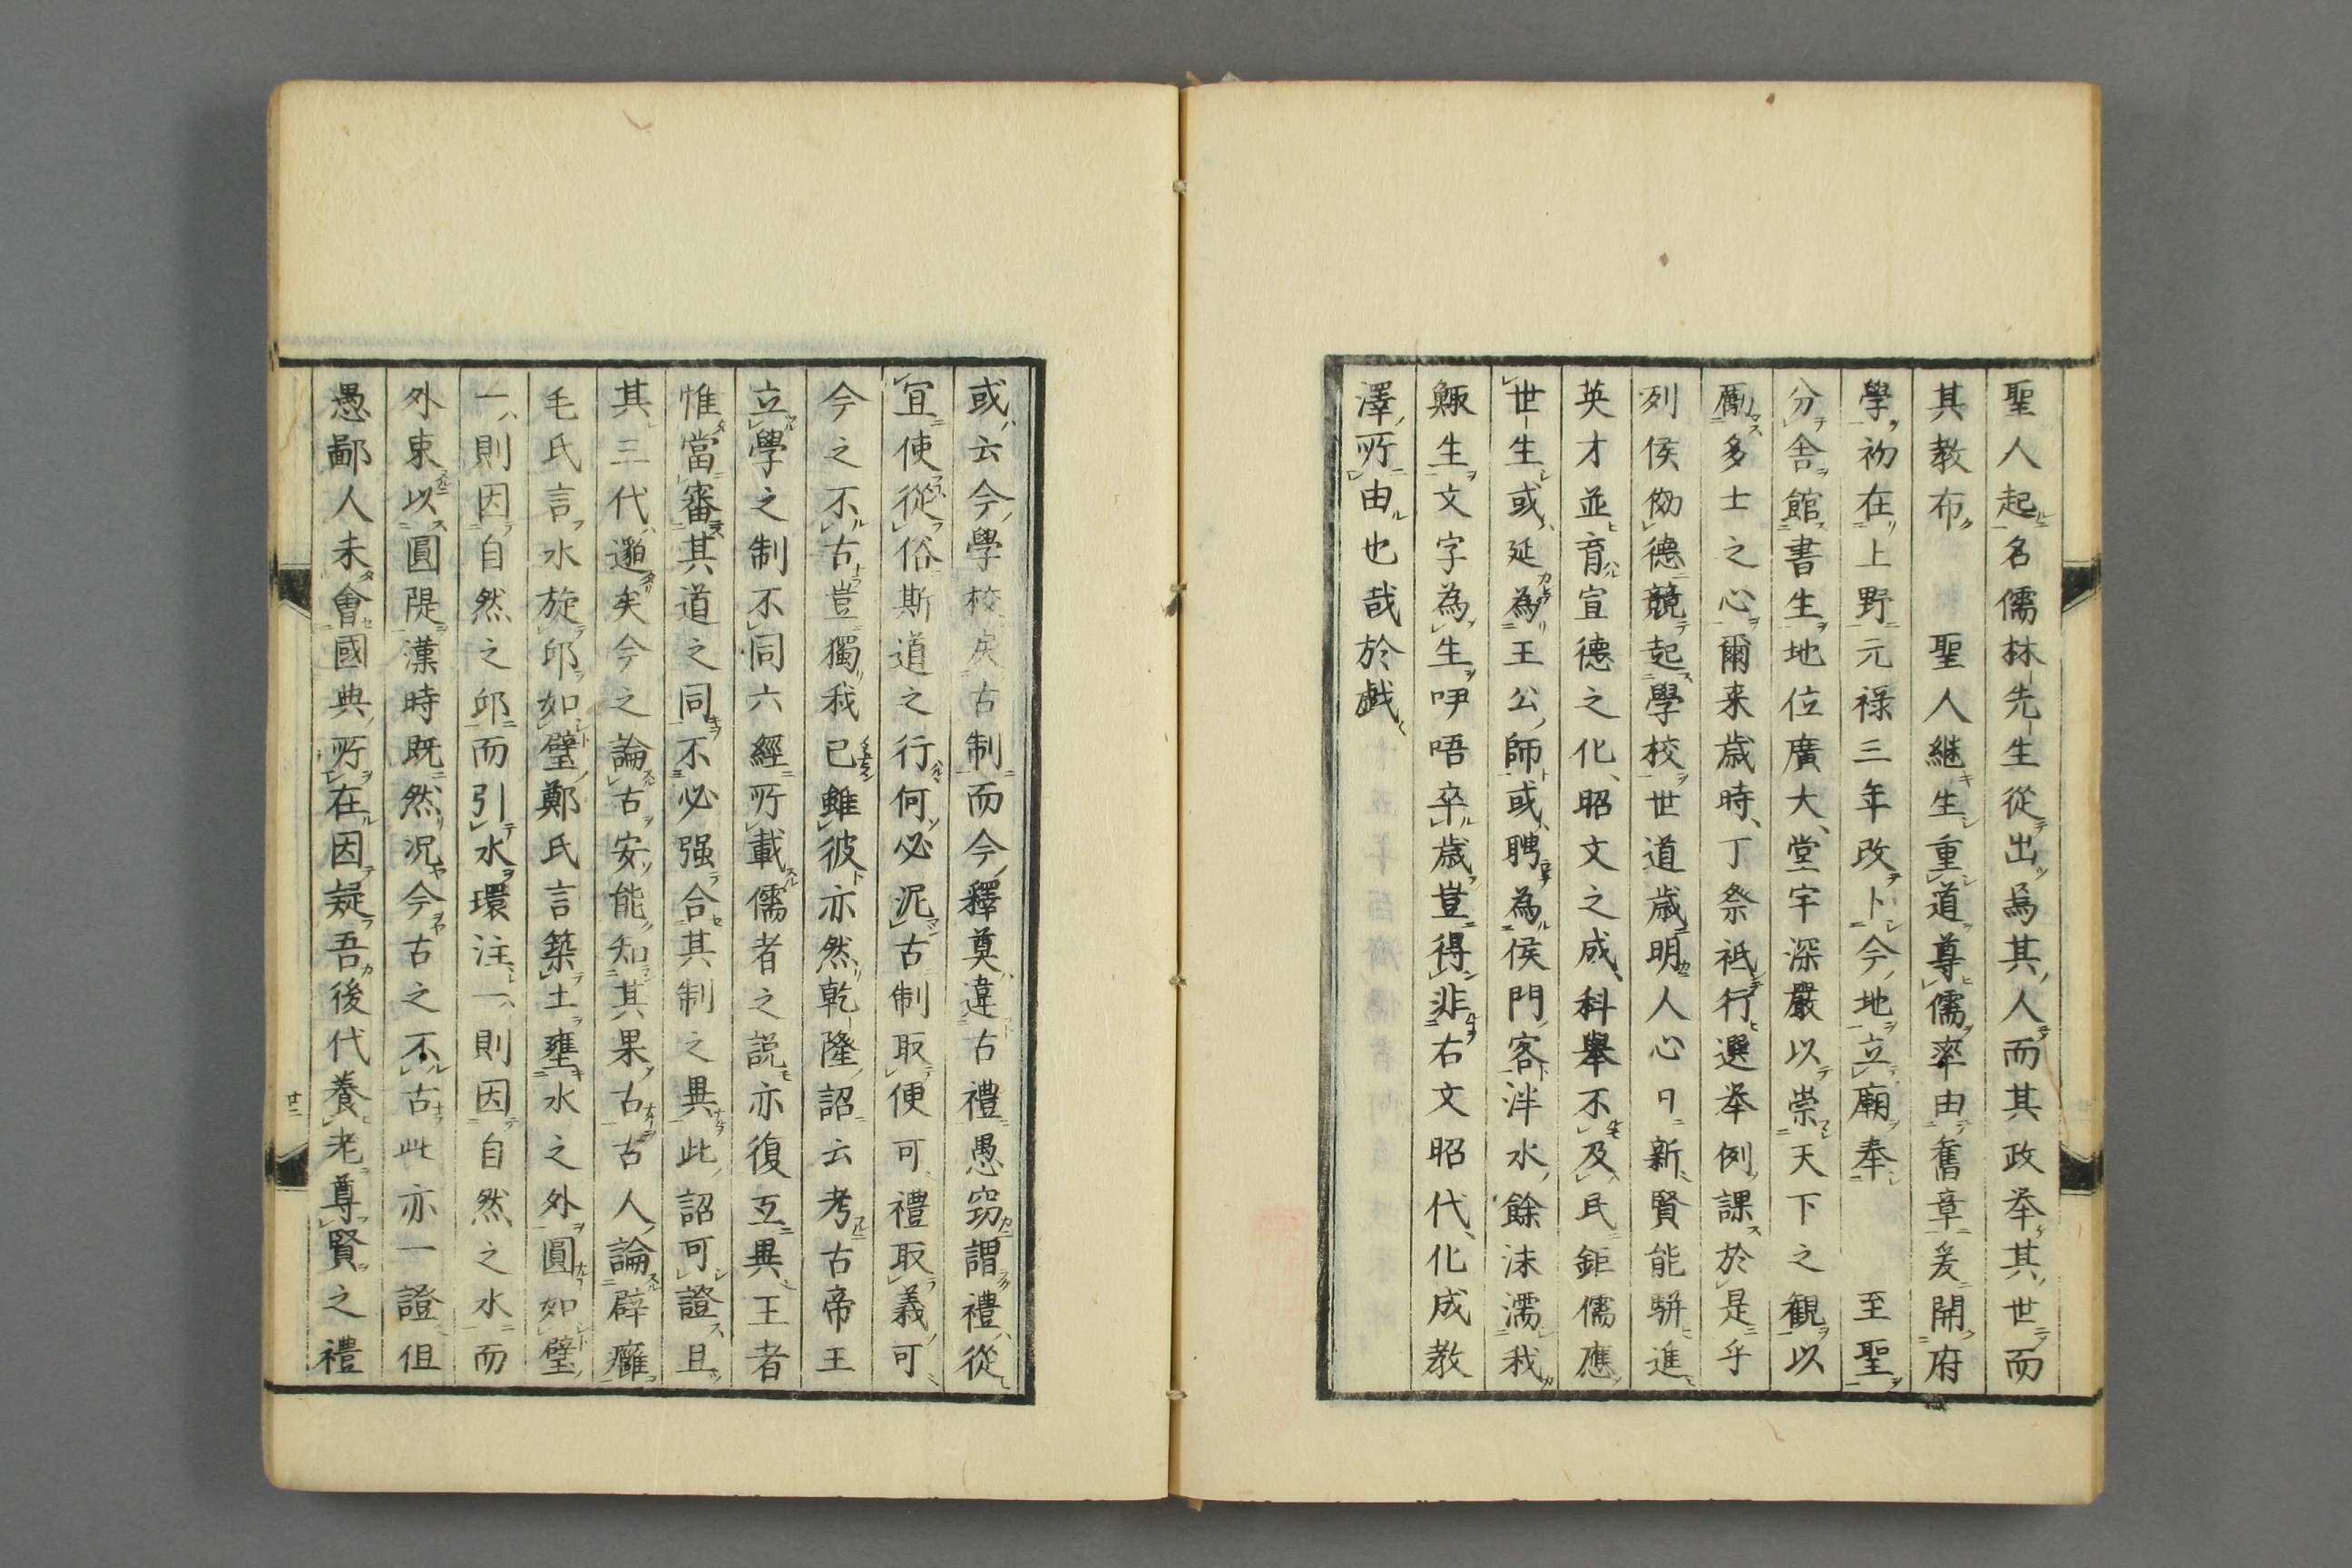 聖人起名儒林先生從出焉其人而其政举其世而
其教布　聖人継生重道尊儒率由舊章爰開府
學初在上野元禄三年改卜今地立廟奉　至聖
分舎館書生地位廣大堂宇深嚴以崇天下之観以
勵多士之心爾来歳時丁祭祗行選举例課於是乎
列侯傚德競起學校世道歳明人心日新賢能駢進
英才並育宣德之化昭文之成科舉不及民鉅儒應
世生或延為王公師或聘為侯門客泮水餘沫濡我
鯫生文字為生吚唔卒歳豈得非右文昭代化成教
澤所由也哉於戯
或云今學校戻古制而今釋奠違古禮愚窃謂禮從
宜使從俗斯道之行何必泥古制取便可禮取義可
今之不古豈獨我已雖彼亦然乾隆詔云考古帝王
立學之制不同六經所載儒者之説亦復互異王者
惟當審其道之同不必强合其制之異此詔可證且
其三代邈矣今之論古安能知其果古古人論辟癰
毛氏言水旋邱如璧鄭氏言築土壅水之外圓如璧
一則因自然之邱而引水環注一則因自然之水而
外東以圓隄漢時既然况今古之不古此亦一證伹
愚鄙人未會國典所在因疑吾後代養老尊賢之禮
廿二